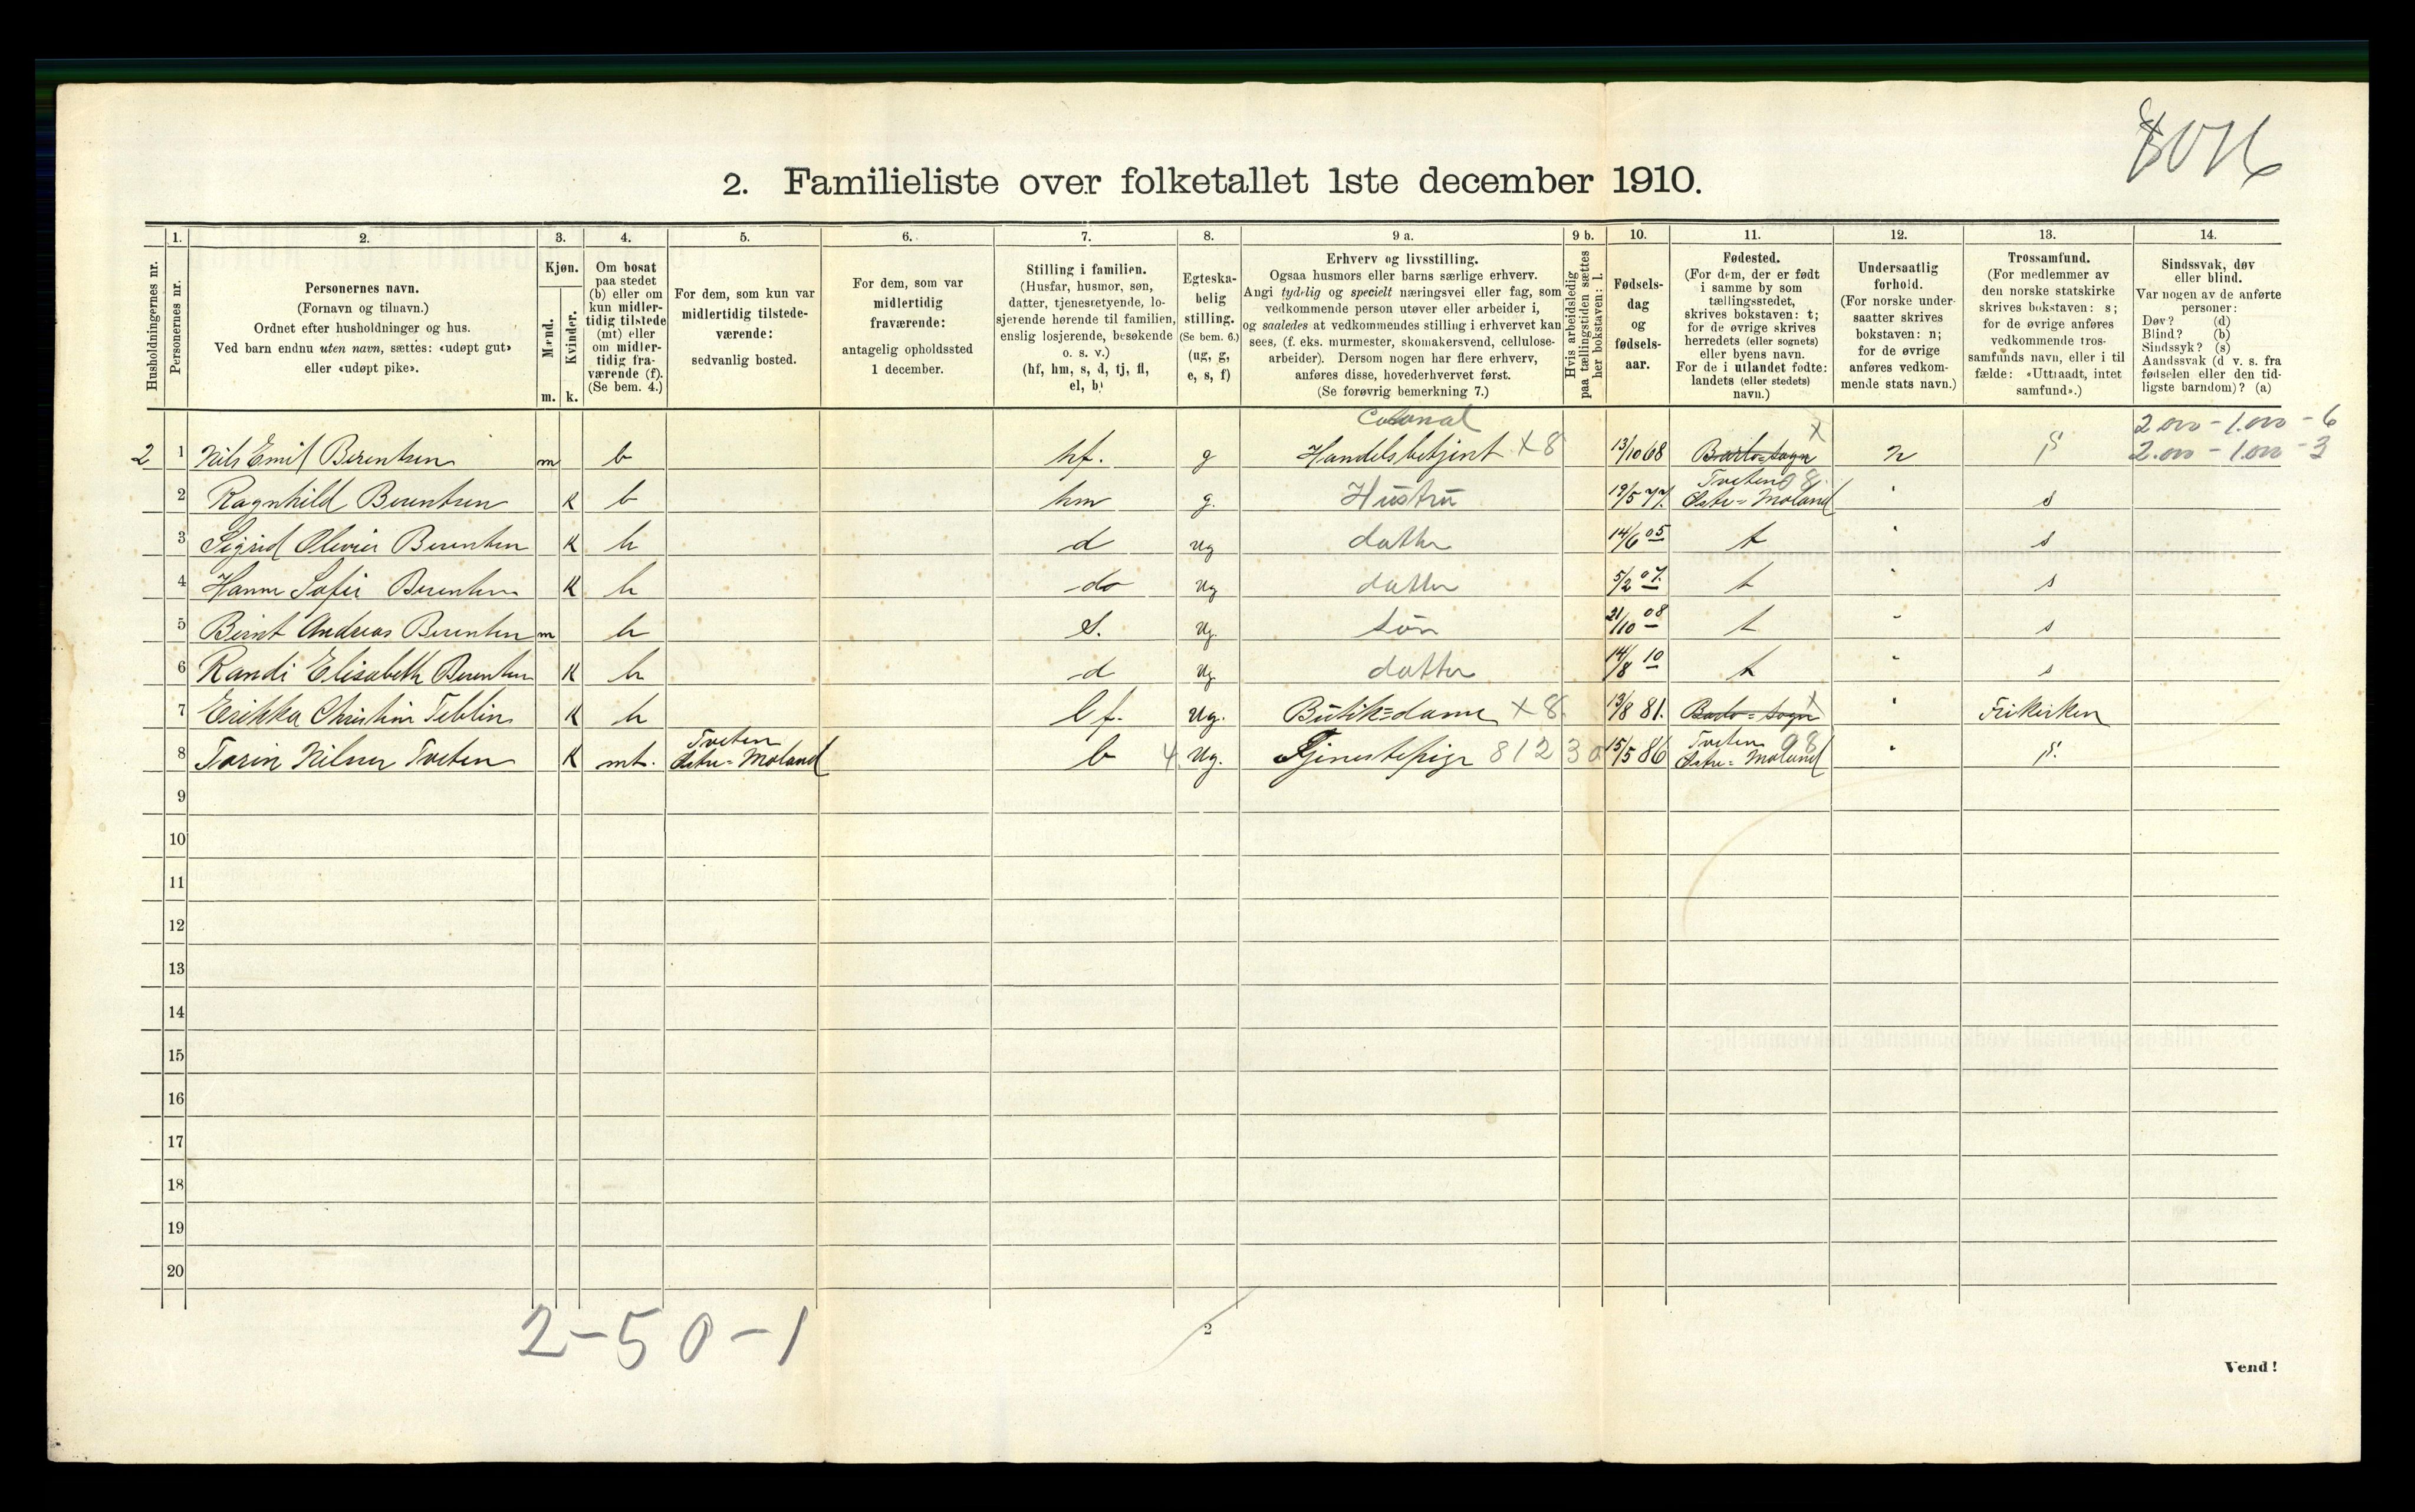 8076
2. Familieliste over folketallet 1ste december 1910.
Husholdningernes nr.
1. Personernes nr.
2. Personernes navn.
(Fornavn og tilnavn.)
Ordnet efter husholdninger og hus.
Ved barn endnu uten navn, sættes: «udøpt gut»
eller «udøpt pike».
3. Kjøn.
Mænd. m.
Kvinder. k.
4. Om bosat
paa stedet
(b) eller om
kun midler-
tidig tilstede
(mt) eller
om midler-
tidig fra-
værende (f).
(Se bem. 4.)
5. For dem, som kun var
midlertidig tilstede-
værende:
sedvanlig bosted.
6. For dem, som var
midlertidig
fraværende:
antagelig opholdssted
1 december.
7. Stilling i familien.
(Husfar, husmor, søn,
datter, tjenestetyende, lo-
sjerende hørende til familien,
enslig losjerende, besøkende
o. s. v.)
(hf, hm, s, d, tj, fl,
el, b)
8. Egteska-
belig
stilling.
(Se bem. 6.)
(ug, g,
e, s, f)
9 a. Erhverv og livsstilling.
Ogsaa husmors eller barns særlige erhverv.
Angi tydelig og specielt næringsvei eller fag, som
vedkommende person utøver eller arbeider i,
og saaledes at vedkommendes stilling i erhvervet kan
sees, (f. eks. murmester, skomakersvend, cellulose-
arbeider). Dersom nogen har flere erhverv,
anføres disse, hovederhvervet først.
(Se forøvrig bemerkning 7.)
9 b. Hvis arbeidsledig
paa tællingstiden sættes
her bokstaven: l.
10. Fødsels-
dag
og
fødsels-
aar.
11. Fødested.
(For dem, der er født
i samme by som
tællingsstedet,
skrives bokstaven: t;
for de øvrige skrives
herredets (eller sognets)
eller byens navn.
For de i utlandet fødte:
landets (eller stedets)
navn.)
12. Undersaatlig
forhold.
(For norske under-
saatter skrives
bokstaven: n;
for de øvrige
anføres vedkom-
mende stats navn.)
13. Trossamfund.
(For medlemmer av
den norske statskirke
skrives bokstaven: s;
for de øvrige anføres
vedkommende tros-
samfunds navn, eller i til-
fælde: «Uttraadt, intet
samfund».)
14. Sindssvak, døv
eller blind.
Var nogen av de anførte
personer:
Døv? (d)
Blind? (b)
Sindssyk? (s)
Aandssvak (d v. s. fra
fødselen eller den tid-
ligste barndom)? (a)
Colonial 2.000 - 1.000 - 6
2 1 Nils Emil Berentsen m b hf. g Handelsbetjent x 8 13/10 68 Barbo=sogn x n s 2.000 - 1.000 - 3
2 Ragnhild Berentsen K b hm g. Hustru 19/5 77. Tveten 98 Østre=Moland " s
3 Sigrid Olevie Berentsen K b d ug datter 14/6 05 t " s
4 Hanne Sofie Berentsen K b do ug datter 5/2 07. t " s
5 Bernt Andreas Berentsen m b s. ug. søn 21/10 08 t " s
6 Randi Elisabeth Berentsen K b d ug datter 14/8 10 t " s
7 Erikka Christine Teblin K b l f. ug. Butik=dame x 8. 13/8 81. Barbo=sogn x " Frikirken
8 Torin Nilsen Tveten K mt. Tveten Østre=Moland b 4. ug. Tjenestepige 8123a 15/5 86 Tveten 98 Østre=Moland " s.
9
10
11
12
13
14
15
16
17
18
19
20
2-50-1
2
Vend!